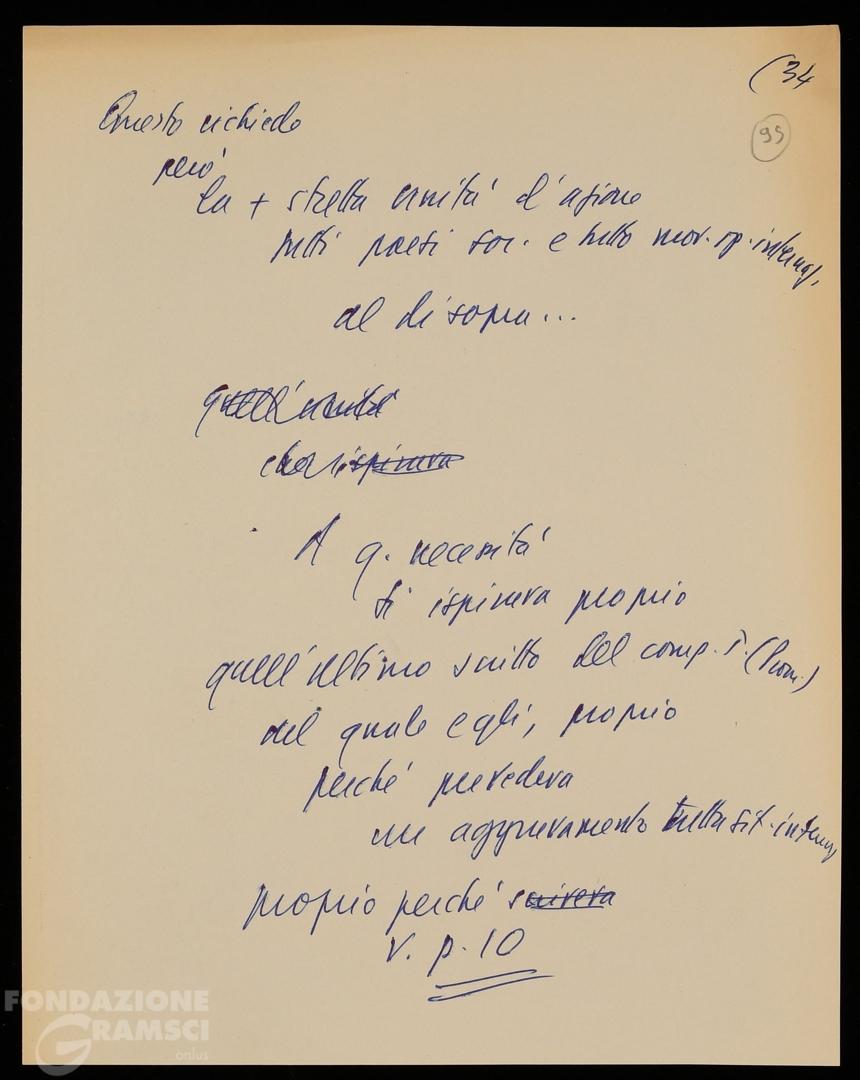 (34
99
Questo richiede
però
la + stretta unità d'azione
tutti paesi soc. e tutto mov. op. internaz.
al di sopra...
quell'unità
che ispirava
A q. necessità
si ispirava proprio
quell'ultimo scritto del comp. T. (Prom.)
nel quale egli, proprio
perché prevedeva
un aggravamento della sit. internaz
proprio perché scriveva
v. p. 10
FONDAZIONE
GRAMSCI
onlus